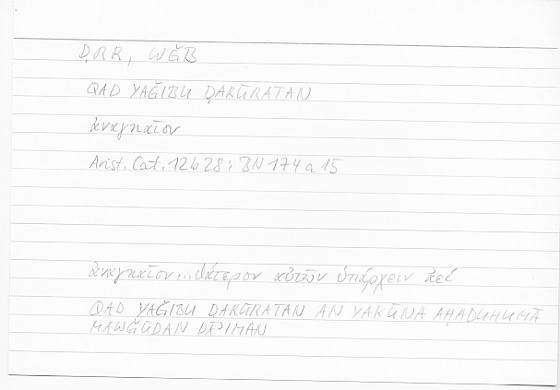 ḌRR, WǦB
QAD YAǦIBU ḌARŪRATAN
ἀναγκαῖον
Arist. Cat. 12b28; BN 174a15
ἀναγκαῖον... θάτερον αὐτῶν ὑπάρχειν ἀεί
QAD YAǦIBU ḌARŪRATAN AN YAKŪNA AḤADUHUMĀ
MAWǦŪDAN DĀʾIMAN